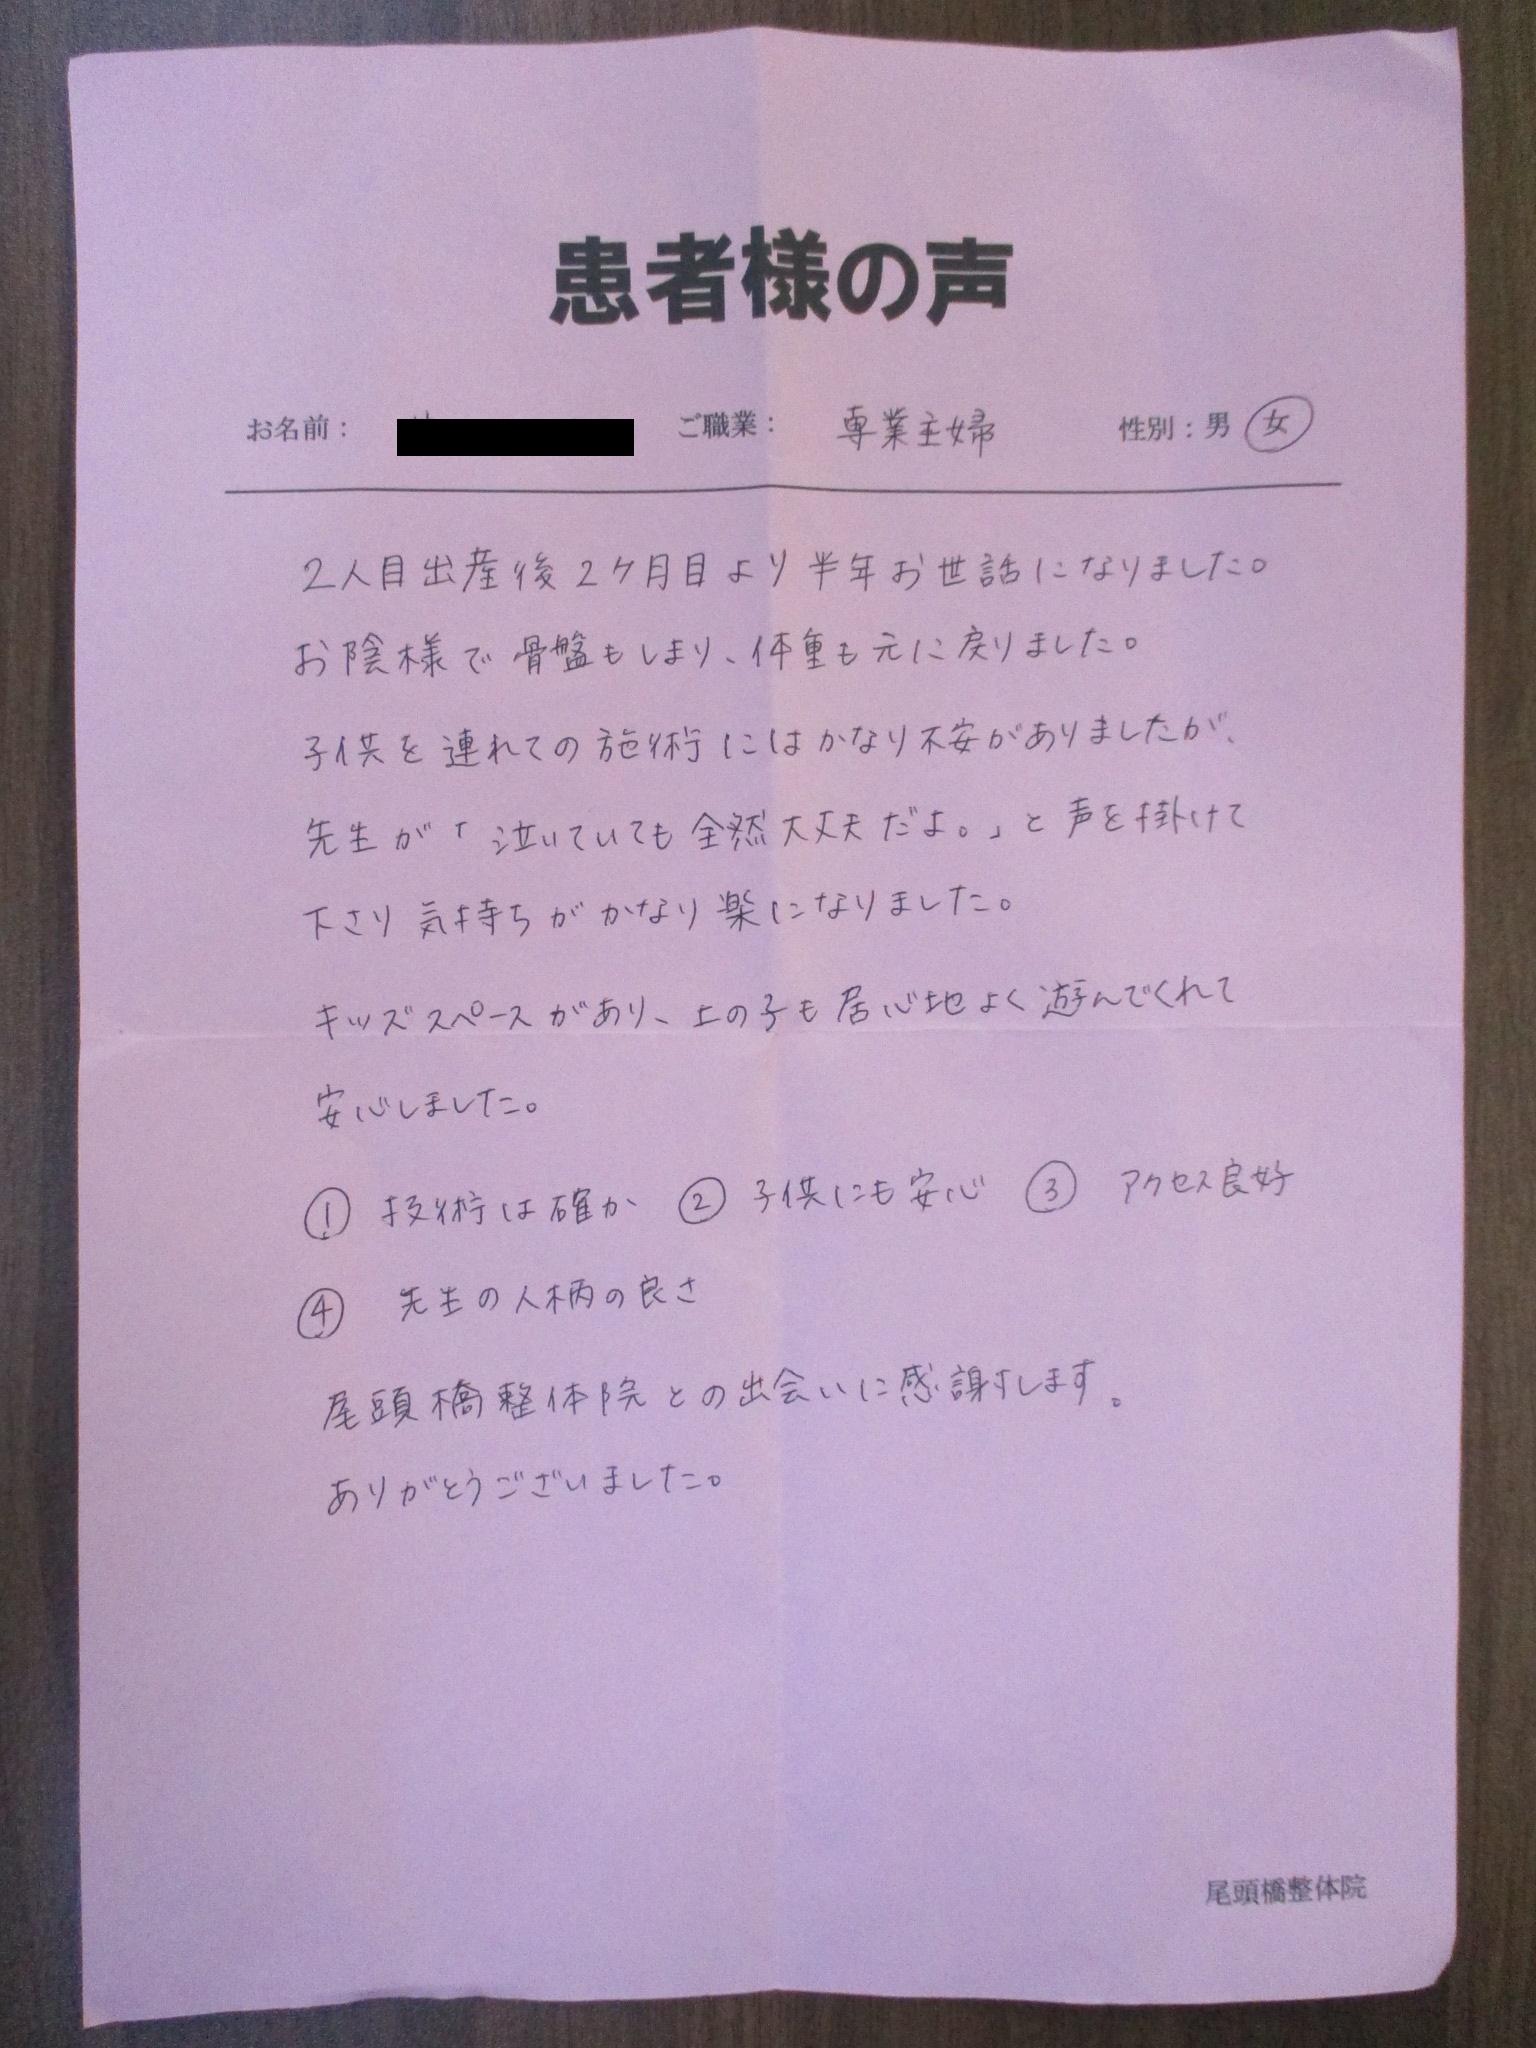 患者様の声
お名前： ご職業： 専業主婦 性別：男 女
2人目出産後2ケ月目より半年お世話になりました。
お陰様で骨盤もしまり、体重も元に戻りました。
子供を連れての施術にはかなり不安がありましたが、
先生が「泣いていても全然大丈夫だよ。」と声を掛けて
下さり気持ちがかなり楽になりました。
キッズスペースがあり、上の子も居心地よく遊んでくれて
安心しました。
① 技術は確か ② 子供にも安心 ③ アクセス良好
④ 先生の人柄の良さ
尾頭橋整体院との出会いに感謝します。
ありがとうございました。
尾頭橋整体院